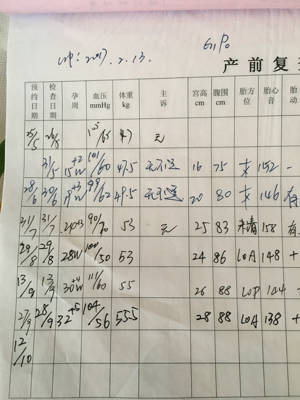 LMP: 2017. 2. 13. G1P0
产前复
预约日期 检查日期 孕周 血压 mmHg 体重 kg 主诉 宫高 cm 腹围 cm 胎方位 胎心音 胎动
25/5 26/5 /65 47 无
31/5 15+2W 101/60 47.5 无不适 16 75 152 -
28/6 30/6 62 49.5 无不适 20 80 146 有
31/7 31/7 24+3 90/70 53 无 25 83 未清 158 有
29/8 29/8 28W 100/50 53 24 86 LOA 148 +
13/9 13/9 30+4W 111/60 55 26 88 LOP 144 +
27/9 28/9 32+5 104/56 55.5 28 88 LOA 138 +
12/10